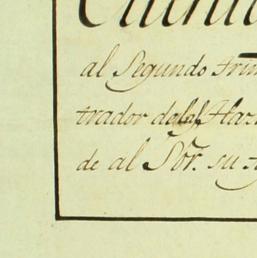 al Segundo trim
trador de las Ha
de al Sor. su